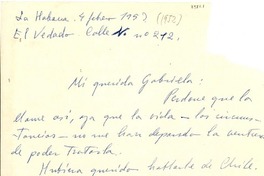 La Habana. 4 febr 1952 (1952)
El Vedado. Calle N. nº 212.
Mi querida Gabriela:
Perdone que la
llame así, ya que la vida - las circuns-
tancias - no me han deparado la ventura
de poder tratarla.
Hubiera querido hablarle de Chile.